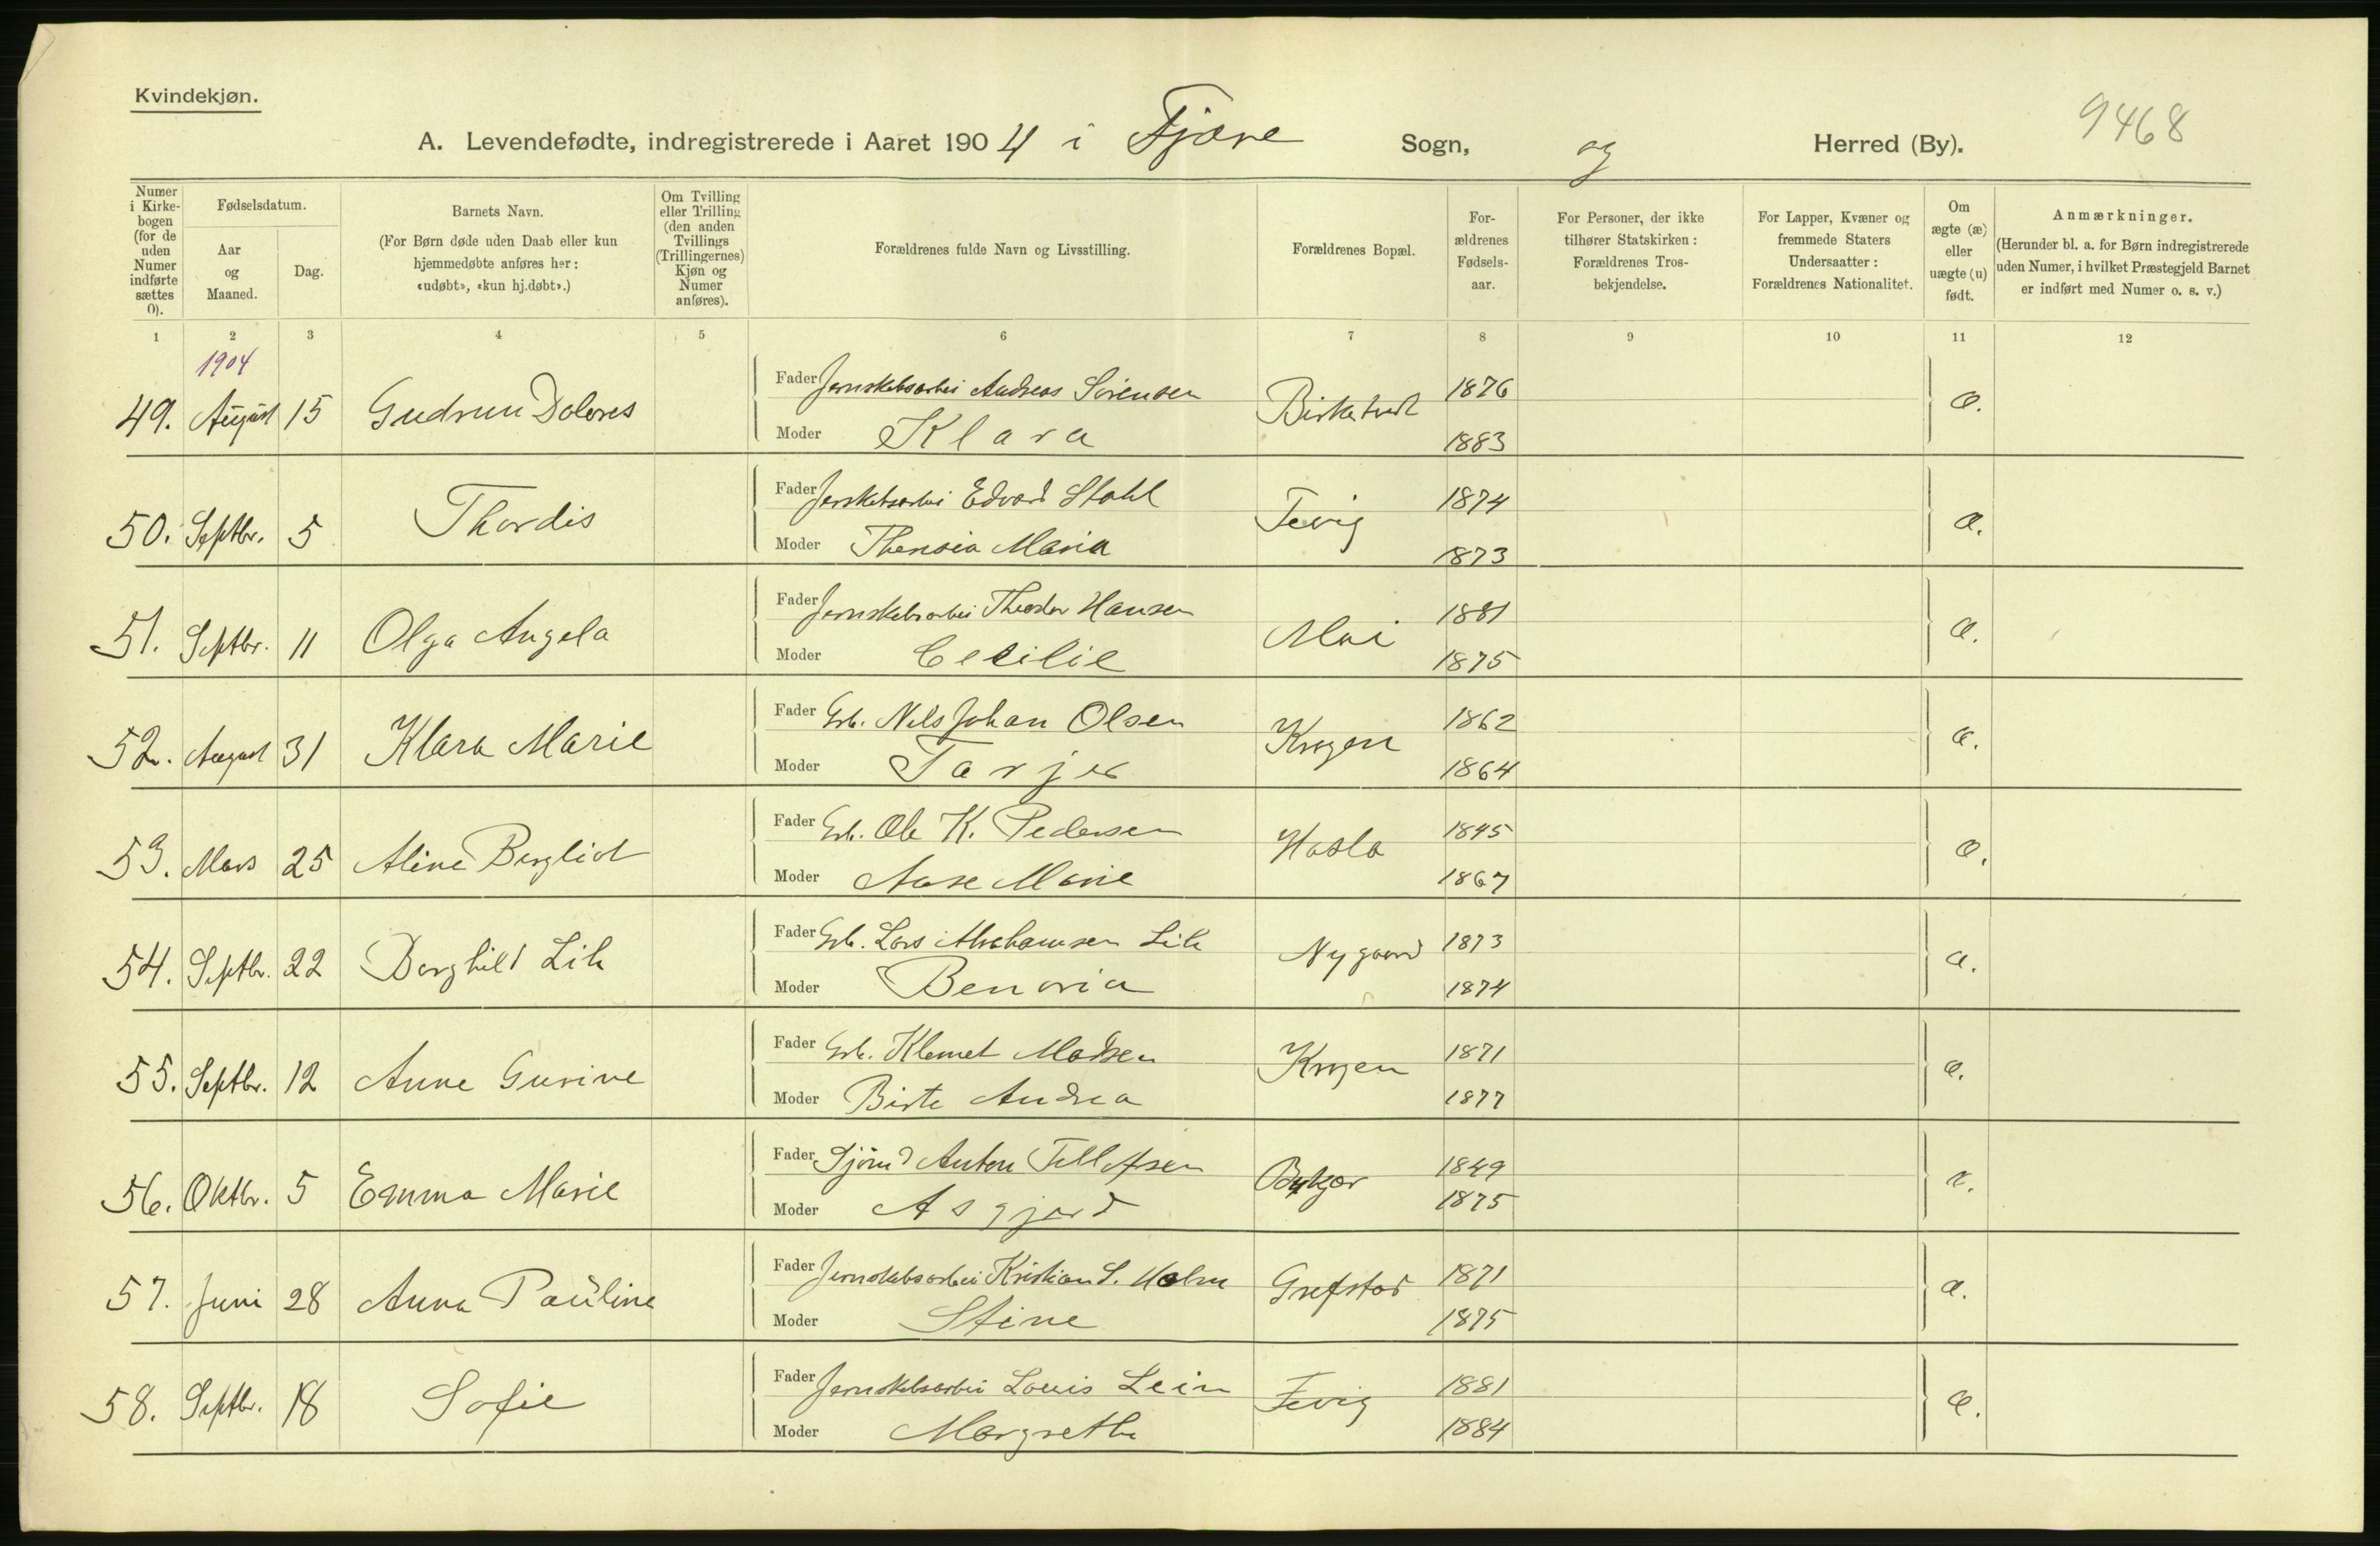 Kvindekjøn.
9468
A. Levendefødte, indregistrerede i Aaret 1904 i Fjære Sogn, og Herred (By).
Numer i Kirkebogen (for de uden Numer indførte sættes 0).
Fødselsdatum.
Aar og Maaned.
Dag.
Barnets Navn.
(For Børn døde uden Daab eller kun hjemmedøbte anføres her: «udøbt», «kun hj.døbt».)
Om Tvilling eller Trilling (den anden Tvillings (Trillingernes) Kjøn og Numer anføres).
Forældrenes fulde Navn og Livsstilling.
Forældrenes Bopæl.
For-ældrenes Fødsels-aar.
For Personer, der ikke tilhører Statskirken: Forældrenes Tros-bekjendelse.
For Lapper, Kvæner og fremmede Staters Undersaatter: Forældrenes Nationalitet.
Om ægte (æ) eller uægte (u) født.
Anmærkninger.
(Herunder bl. a. for Børn indregistrerede uden Numer, i hvilket Præstegjeld Barnet er indført med Numer o. s. v.)
1 2 3 4 5 6 7 8 9 10 11 12
1904
49. August 15 Gudrun Dolores Fader Jernskibsarbei Andreas Sörensen 1876 æ.
Moder Klara 1883
50. Septbr. 5 Thordis Fader Jernskibsarbei Edvard Stahl Fevig 1874 æ.
Moder Maria 1873
51. Septbr. 11 Olga Angela Fader Jernskibsarbei Theodor Hansen Moi 1881 æ.
Moder Cecilie 1875
52. August 31 Klara Marie Fader Grb. Nels Johan Olsen Krogen 1862 æ.
Moder 1864
53. Mars 25 Aline Bergliot Fader Grb. Ole K. Pedersen Hasla 1845 æ.
Moder Aase Marie 1867
54. Septbr. 22 Borghild Lik Fader Grb. Lars Abrahamsen Lik Nygaard 1873 æ.
Moder Benoria 1874
55. Septbr. 12 Anne Gurine Fader Grb. Klemet Madsen Krogen 1871 æ.
Moder Birte Andrea 1877
56. Oktbr. 5 Emma Marie Fader Sjömd Anton Tellefsen 1849 æ.
Moder Asgjerd 1875
57. Juni 28 Anna Pauline Fader Jernskibsarbei Kristian S. Holm Grefstad 1871 æ.
Moder Stine 1875
58. Septbr. 18 Sofie Fader Jernskibsarbei Louis Lein Fevig 1881 æ.
Moder Margrethe 1884